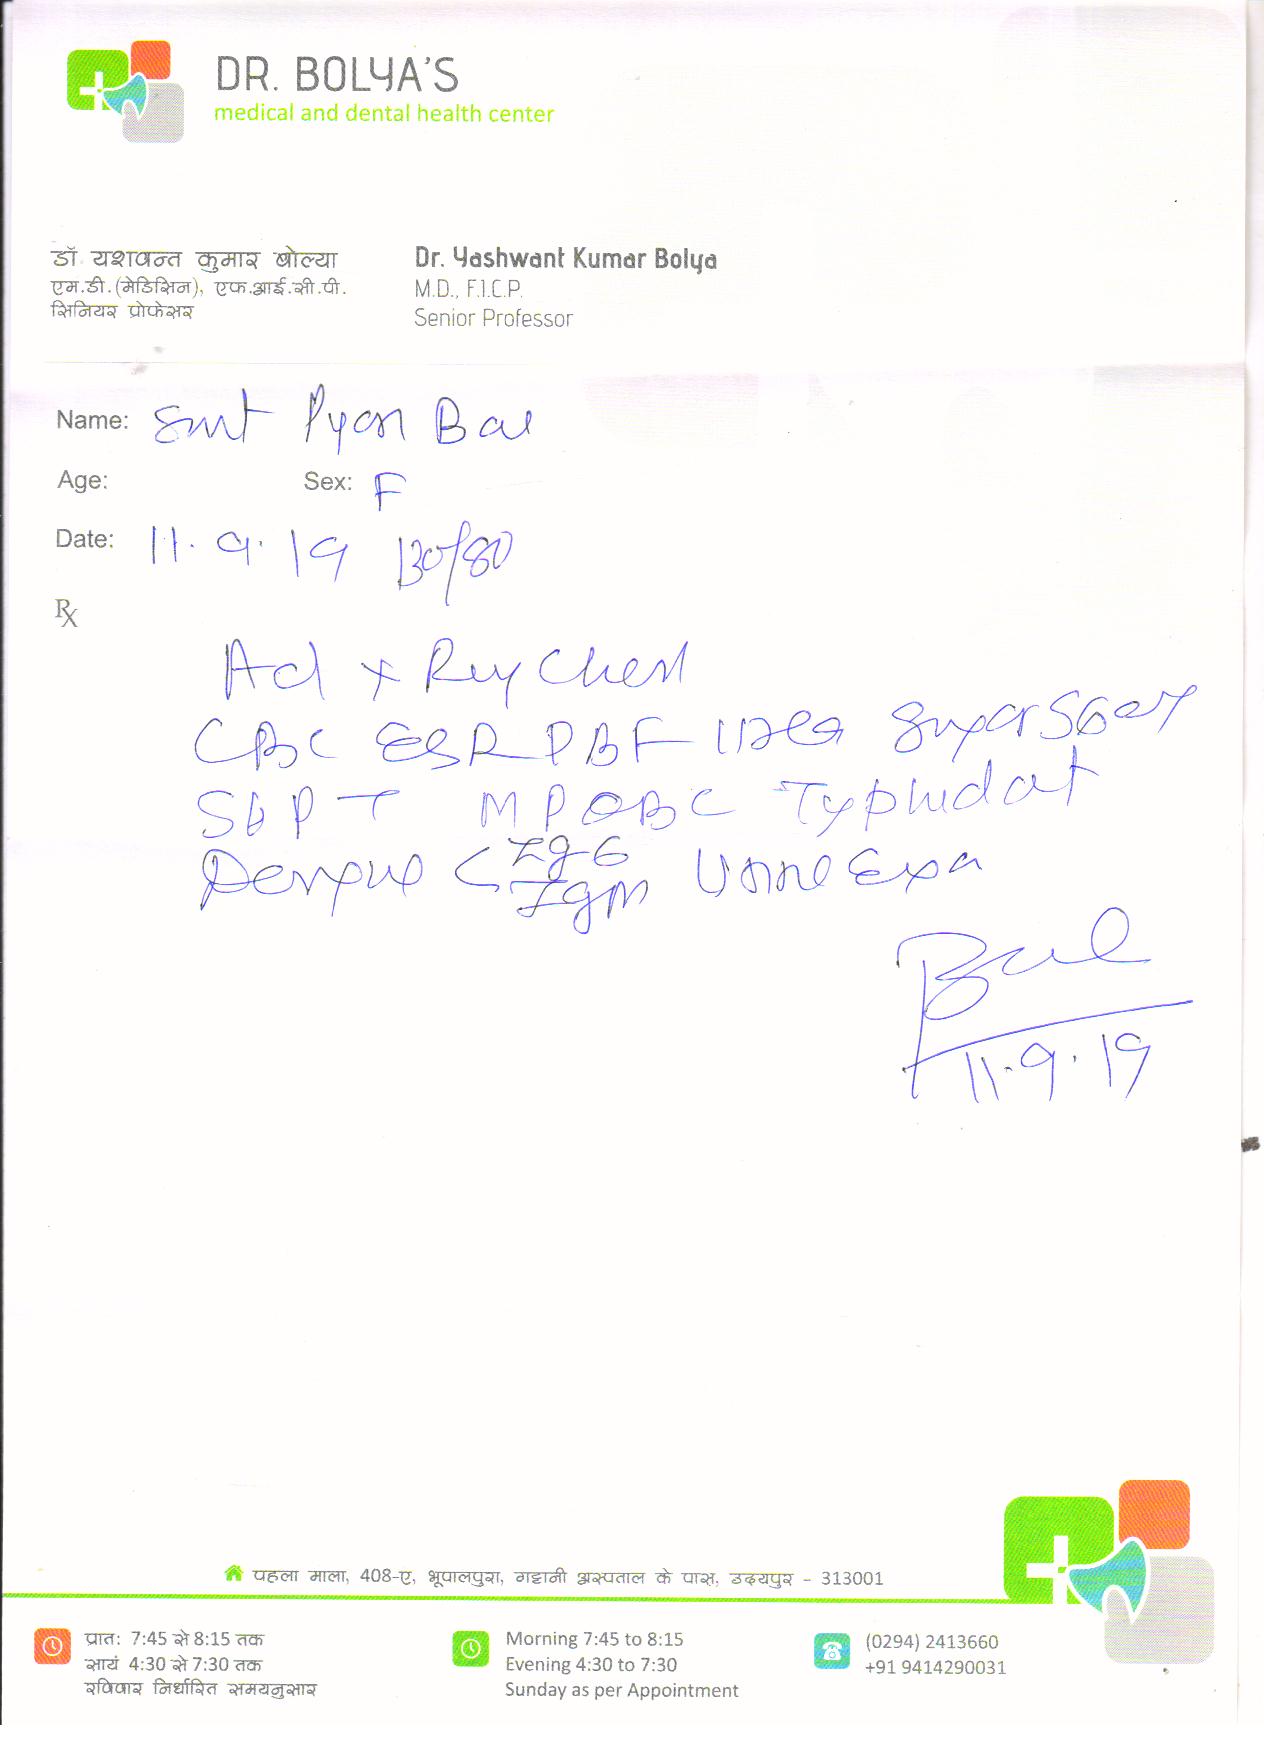 DR. BOLYA'S
medical and dental health center
डॉ यशवन्त कुमार बोल्या
एम.डी.(मेडिसिन), एफ.आई.सी.पी.
सिनियर प्रोफेसर
Dr. Yashwant Kumar Bolya
M.D., F.I.C.P.
Senior Professor
Name: Smt Pyari Bai
Age: Sex: F
Date: 11.9.19 130/80
Rx
Ad X Ray Chest
CBC ESR PBF
SGPT MP QBC Typhidot
Dengue < IgG
IgM Urine Exa
11.9.19
पहला माला, 408-ए, भूपालपुरा, गट्टानी अस्पताल के पास, उदयपुर - 313001
प्रातः 7:45 से 8:15 तक
सायं 4:30 से 7:30 तक
रविवार निर्धारित समयनुसार
Morning 7:45 to 8:15
Evening 4:30 to 7:30
Sunday as per Appointment
(0294) 2413660
+91 9414290031